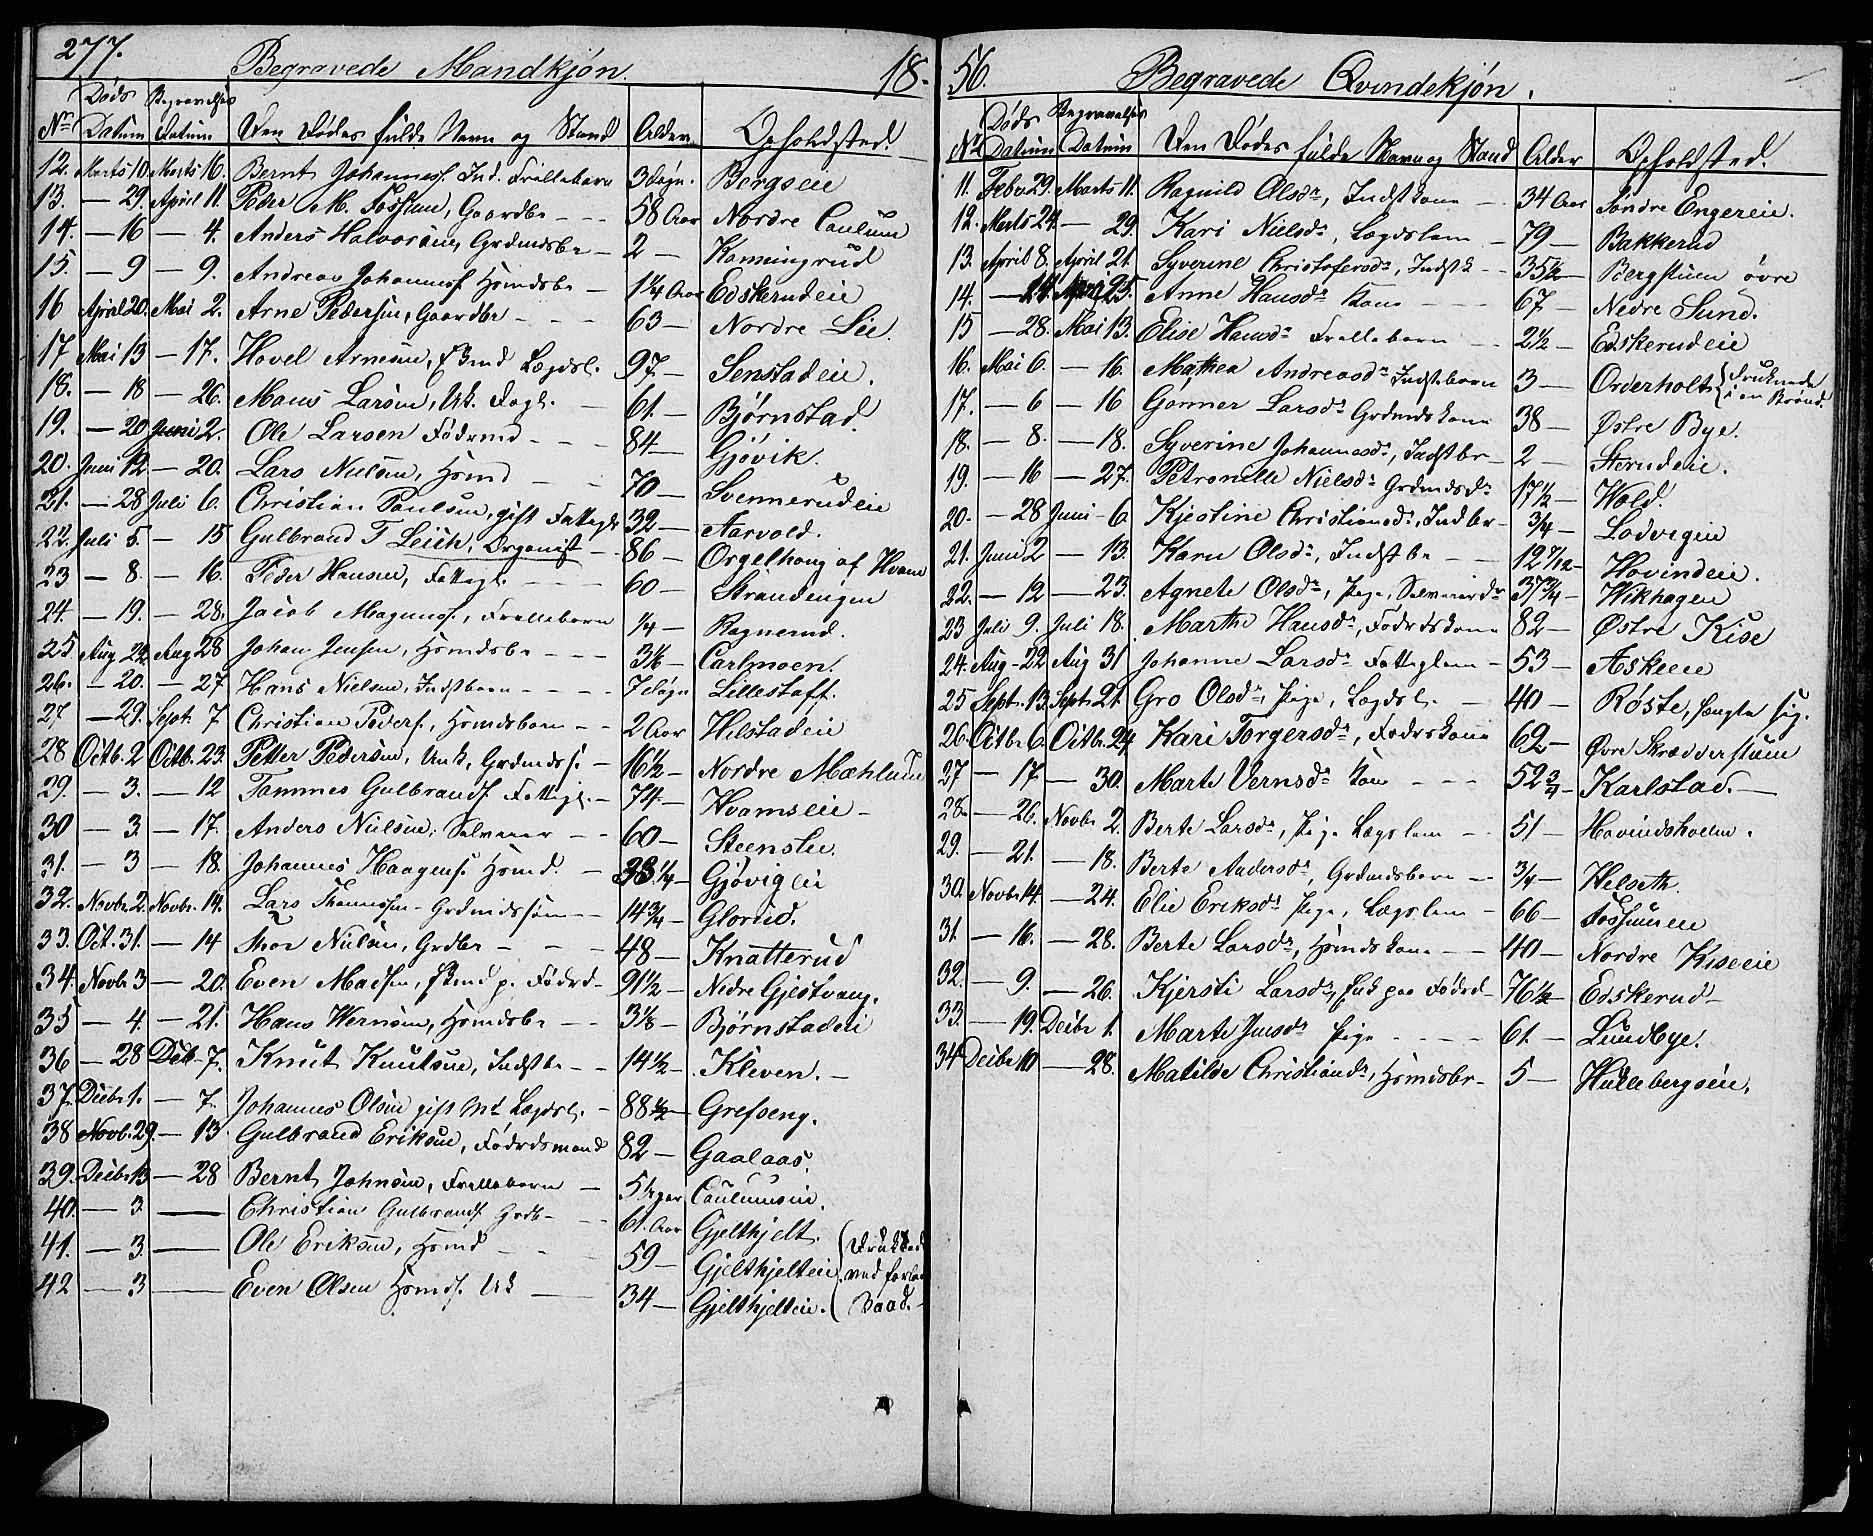 277.
Begravede Mandkjøn. 18-
Nr. Døds Datum Begravelses Datum Den Dødes fulde Navn og Stand Alder Opholdsted.
12. Marts 10. Marts 16. Bernt Johannes. Ind. Frelleborn 3 Døgn. Bergseie
13. — 29. April 11. Peder M. Fossum, Gaardbr - - - 58 Aar Nordre Caulum
14. — 16 — 4. Anders Halvorsen, Grdmdsbr - 2 — Kamingrud
15. — 9 — 9. Andreas Johannes. Hsmdsbr — 1¼ Aar Edskerudeie
16 April 20. Mai 2. Arne Pedersen, Gaardbr - - - 63 — Nordre Lie.
17 Mai 13 — 17. Hovel Arnesen, Lægdsl. 97 — Senstadeie.
18. — 18 — 26. Mons Larsen, Uk. Fogl. - 61. — Bjørnstad.
19. — 20 Juni 2. Ole Larsen Fødrmd - - - 84 — Gjøvik.
20. Juni 12 — 20. Lars Nielsen, Hsmd - - 70 — Svennerudeie
21. — 28 Juli 6. Christian Paulsen, gift Fattigl. 32 — Aarvold.
22. Juli 5. — 15 Gulbrand T Leich, Organist - 86 — Orgelhoug af Hvam
23 — 8. — 16. Peder Hansen, Fattigl. - - - 60 — Strandengen
24. — 19. — 28. Jacob Magnus., Frelleborn ¼ — Ragnerud.
25. Aug 24. Aug 28 Johan Jensen, Hsmdsbr - - - 3⅙ — Carlmoen.
26. — 20. — 27 Hans Nielsen, Indstbarn - - - - 7 Døgn Lillestaff.
27 — 29. Septr 7 Christian Peders., Hsmdsbarn - - 2 Aar Hilstadeie
28 Octb. 2 Octb. 23. Petter Pedersen, Unk, Grdmdss. - 16½ — Nordre Mæhlum
29. — 3. — 12 Tommes Gulbrands. Fattigl. - 74. — Hvamseie -
30 — 3. — 17. Anders Nielsen, Selveier - - 60 — Steenslie.
31. — 3 — 18. Johannes Haagens. Hsmd. - 33¼ — Gjøvigeie
32. Novbr. 2. Novbr. 14. Lars Thomessen - Grdmdssøn - - 14¾ — Glorud.
33. Oct. 31. — 14 Thor Nielsen, Grdbr - - - 48 — Knatterud
34. Novbr 3 — 20. Even Madsen, Ekmd p. Fødrd - 91½ — Nedre Gjestvang.
35 — 4. — 21. Hans Wernsen, Hsmdsbr - - 3⅙ — Bjørnstadeie
36 — 28 Decb. 7. Knut Knutsen, Indstbr - - 14½ — Kleven. -
37. Decbr 1. — 7. Johannes Olsen gift Md Lægdsl. - 88½ — Grefseng.
38 Novb. 29. — 13 Gulbrand Eriksen, Fødrdsmand 82 — Gaalaas.
39. Decbr 13 — 28 Bernt Johnsen, Frelleborn — 5 Uger Caulumseie.
40. — 3. — Christian Gulbrands. Grdb - - - 61. Aar Gjelthjelt.
41. — 3. — Ole Eriksen, Hsmd - - - 59 — Gjelthjelteie
42 — 3 — Even Olsen Hsmds. Uk — 34 — Gjelthjelteie.
( Druknede
ved forlist
Baad. -
56. Begravede Qvindekjøn.
Nr. Døds Datum Begravelses Datum Den Dødes fulde Navn og Stand Alder Opholdsted.
11. Febr 29. Marts 11. Ragnild Olsdr, Indstkone - 34 Aar Søndre Engereie.
12. Marts 24. — 29. Kari Nielsdr, Lægdslem - 79 — Bakkerud
13. April 8. April 21. Syverine Christofersdr, Indstk - - 35½ — Bergstuen øvre
14. — April 25. Anne Hansdr Kone - - - 67 — Nedre Sund.
15 — 28. Mai 13. Elise Hansdr Frelleborn - - 2½ — Edskerudeie
16. Mai 6. — 16. Mathea Andreasdr Indstbarn 3 — Orderholt { Druknede i en Brønd.
17. — 6 — 16 Gonner Larsdr Grdmdskone 38 — Østre Bye.
18. — 8. — 18. Syverine Johannesdr, Indstbr - 2 — Sterudeie.
19. — 16 — 27. Petronelle Nielsdr Grdmdsdr 17½ — Wold.
20. — 28 Juni - 6 Kjestine Christiansdr, Indbr - ¾ — Lodvigeie
21. Juni 2 — 13. Karen Olsdr, Indstbr - - 12 7/12 — Hovindeie.
22. — 12 — 23. Agnete Olsdr, Pige, Selveierdr 37¾ — Wikhagen
23 Juli 9. Juli 18. Marthe Hansdr, Fødrdskone 82 — Østre Kise
24. Aug - 22 Aug 31 Johanne Larsdr Fattiglem - 53 — Askeeie
25 Septr. 13. Septr. 21 Gro Olsdr, Pige, Lægdsl. - 40 — Røste, hengte sig.
26. Octbr. 6. Octbr. 24 Kari Torgersdr, Fødrskone 62 — Øvre Skrædderstuen
27 — 17. — 30. Marte Vernsdr Kone - - - 52¾ — Karlstad. -
28. — 26. Novbr 2. Berte Larsdr, Pige Lægslem - - 51 — Hovindsholm.
29. — 21. — 18. Berte Andersdr, Grdmdsbarn - - ¾ — Helseth.
30. Novbr 14. — 24. Elie Eriksdr Pige, Lægslem - 66 — Fossumeie
31. — 16. — 28. Berte Larsdr, Hsmdskone - - 40 — Nordre Kiseeie
32. — 9. — 26. Kjersti Larsdr, Enk paa Fødrd - 76½ — Edskerud -
33. — 19. Decbr 1. Marte Jensdr Pige - - - - 61. — Lundbye.
34 Decbr 10 — 28. Matilde Christiansdr, Hsmdsbr - 5 — Hullebergseie.